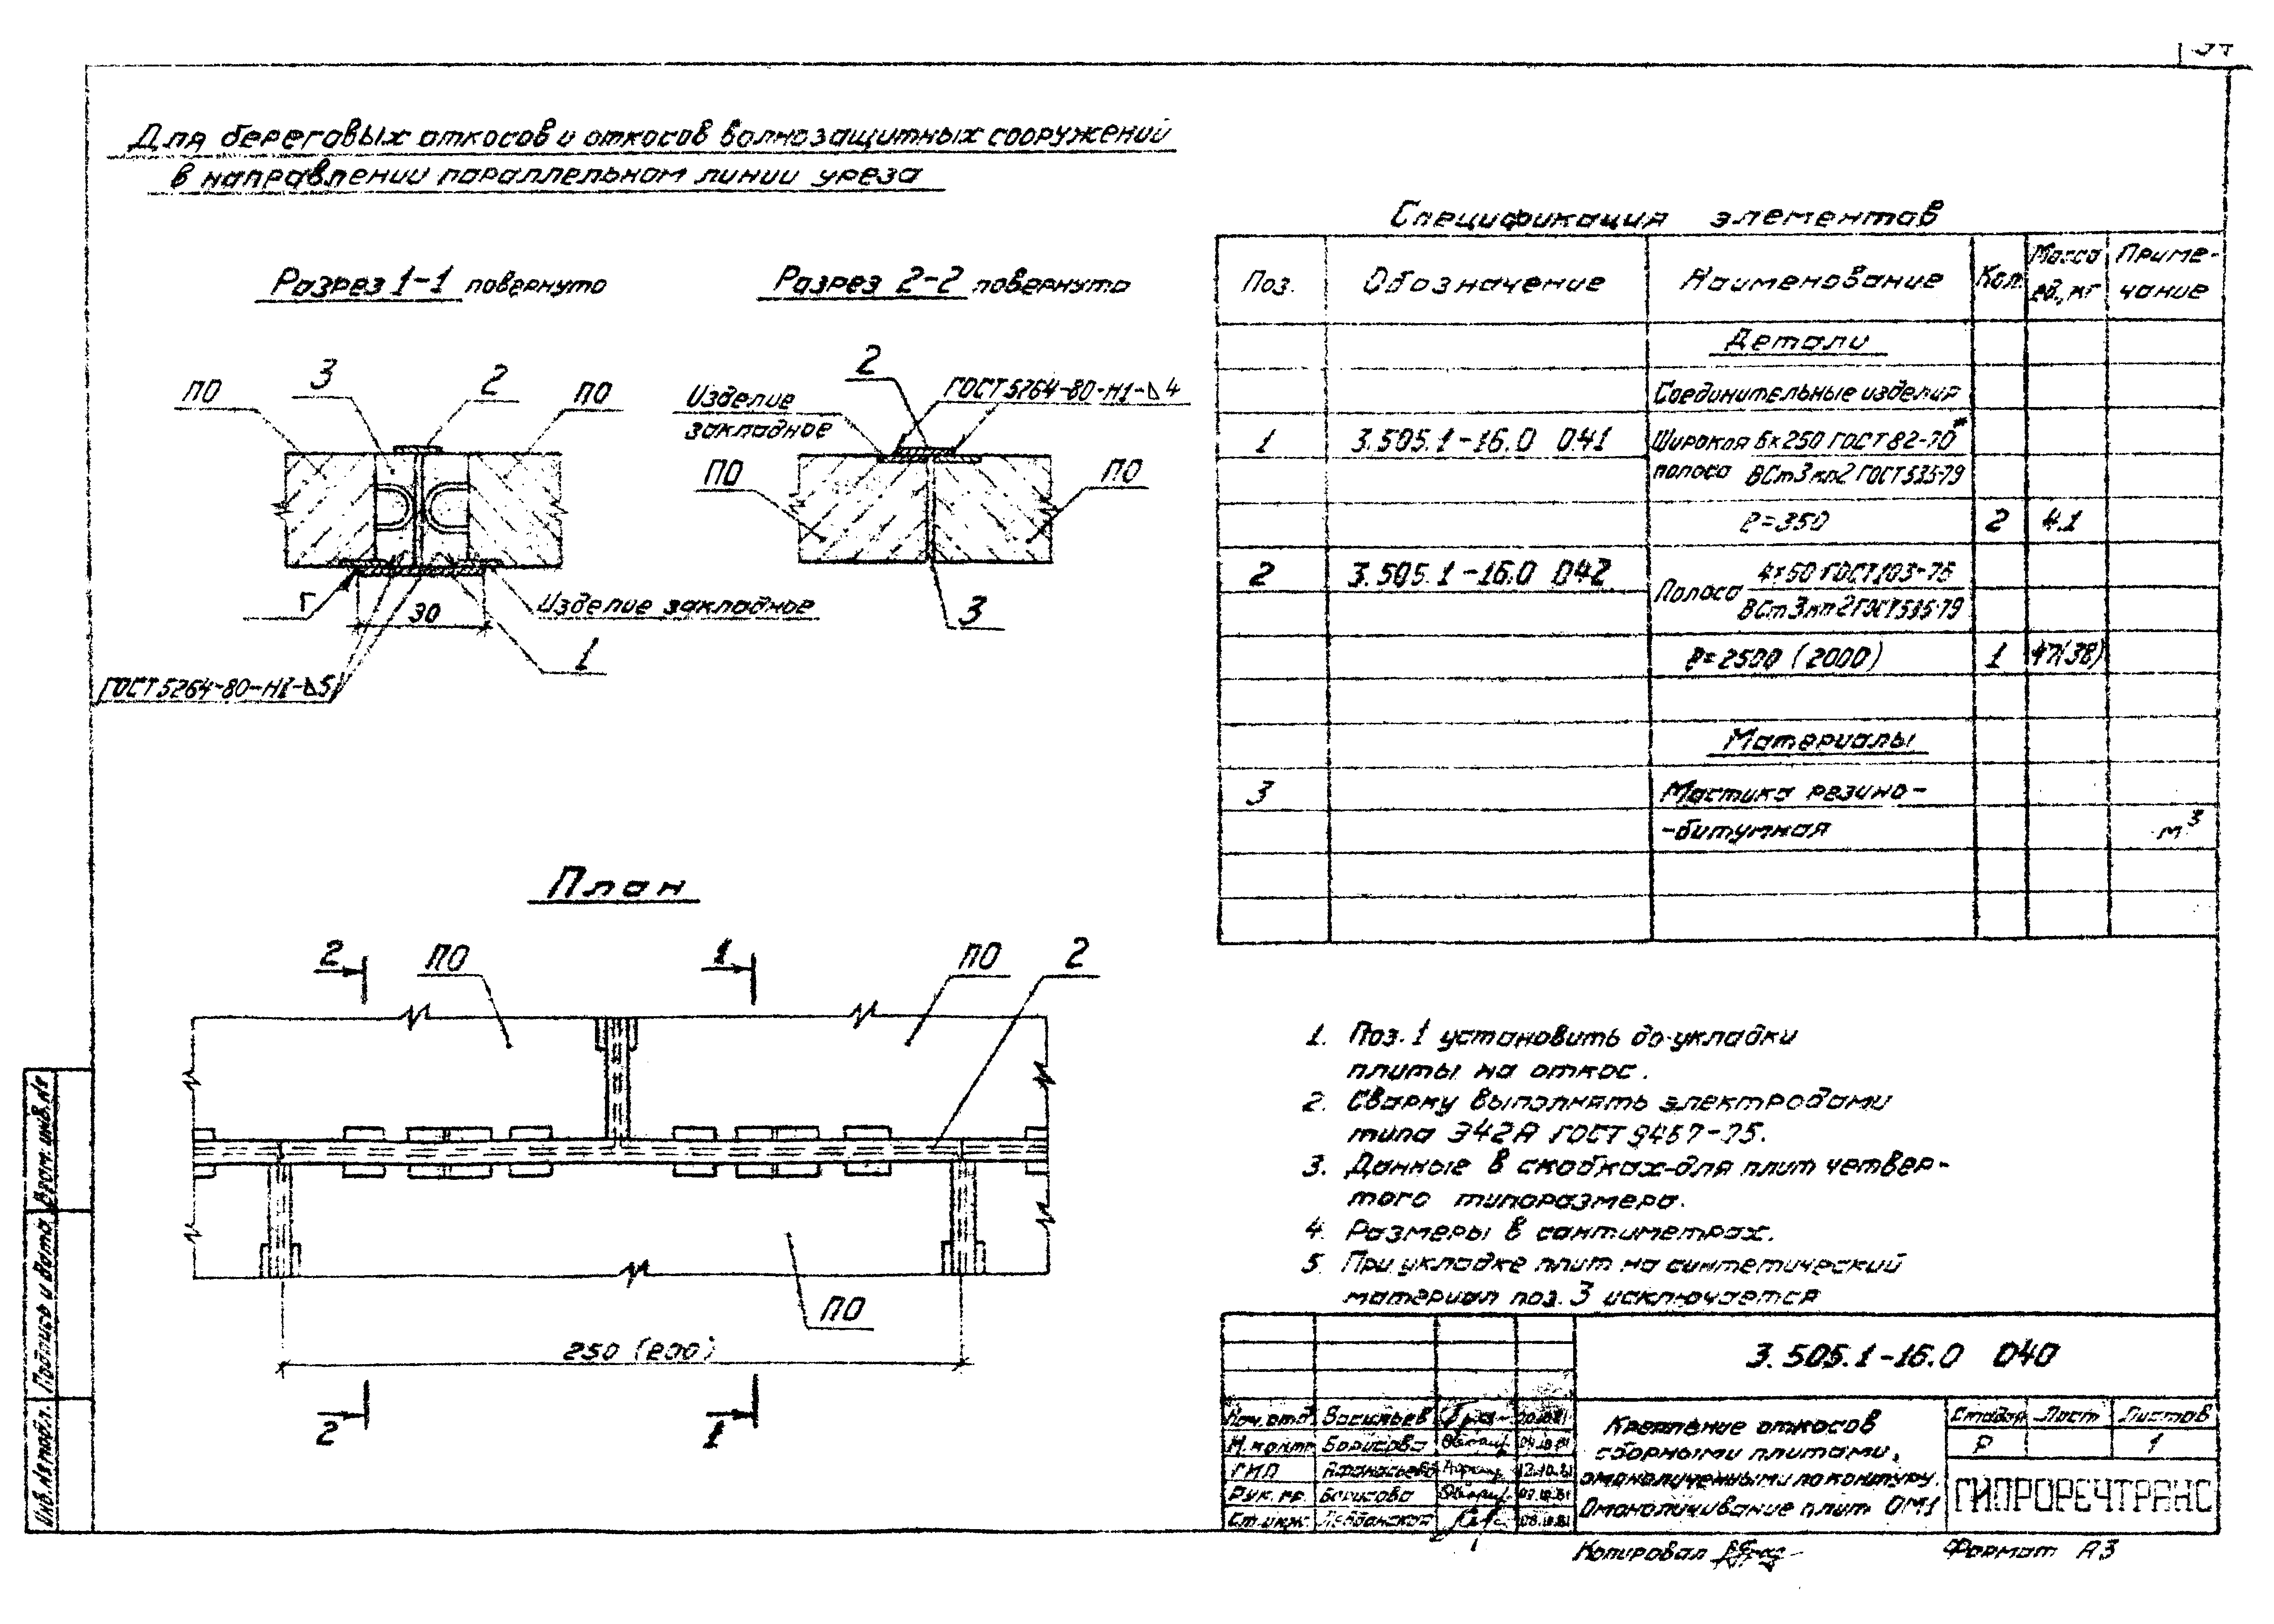 Для береговых откосов и откосов волнозащитных сооружений
в направлении параллельном линии уреза
Разрез 1-1 повернуто
Разрез 2-2 повернуто
ПО
3
2
ПО
Г
30
Изделие закладное
1
ГОСТ 5264-80-Н1-⊿5
2
Изделие
закладное
ГОСТ 5264-80-Н1-⊿4
ПО
ПО
3
Спецификация элементов
Поз.
Обозначение
Наименование
Кол.
Масса
ед., кг
Приме-
чание
Детали
Соединительные изделия
1
3.505.1-16.0 041
Широкая 6х250 ГОСТ 82-70*
полоса ВСт3кп2 ГОСТ 535-79
ℓ=350
2
4.1
2
3.505.1-16.0 042
Полоса
4х60 ГОСТ 103-76
ВСт3кп2 ГОСТ 535-79
ℓ=2500 (2000)
1
4,7(3,8)
Материалы
3
Мастика резино-
-битумная
м³
План
2
ПО
1
ПО
2
ПО
250 (200)
2
1
1. Поз. 1 установить до укладки
плиты на откос.
2. Сварку выполнять электродами
типа Э42А ГОСТ 9467-75.
3. Данные в скобках-для плит четвер-
того типоразмера.
4. Размеры в сантиметрах.
5. При укладке плит на синтетический
материал поз. 3 исключается
3.505.1-16.0 040
Нач.отд. Васильев
Н.контр. Борисова
ГИП Афанасьева
Рук. гр. Борисова
Ст.инж.
Крепление откосов
сборными плитами,
омоноличенными по контуру.
Омоноличивание плит ОМ1
Стадия
Лист
Листов
Р
1
ГИПРОРЕЧТРАНС
Копировал
Формат А3
Взам. инв.№
Подпись и дата
Инв.№ подл.